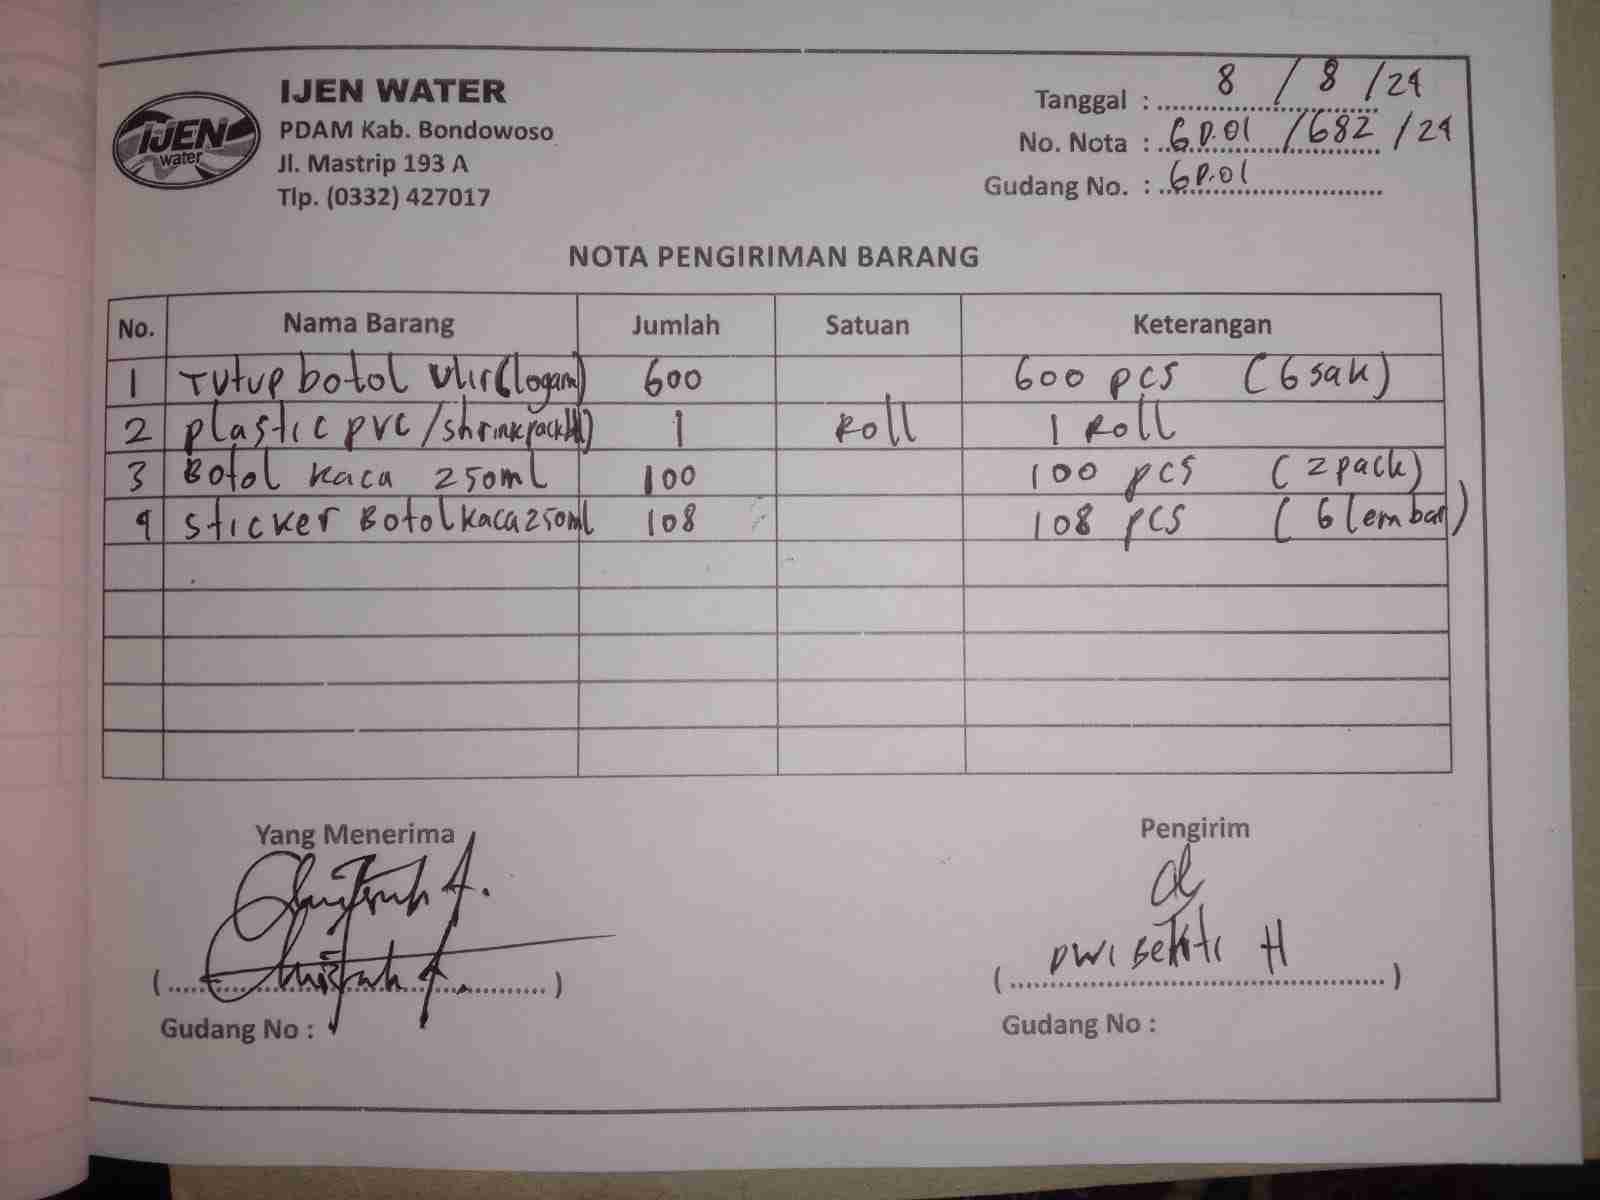 IJEN WATER
PDAM Kab. Bondowoso
Jl. Mastrip 193 A
Tlp. (0332) 427017
IJEN
water
Tanggal : 8 / 8 / 24
No. Nota : GP.01 / 682 / 24
Gudang No. : GP.01
NOTA PENGIRIMAN BARANG
No. Nama Barang Jumlah Satuan Keterangan
1 Tutup botol Ulir (logam) 600 600 pcs (6 sak)
2 plastic pvc / shrink 1 Roll 1 Roll
3 Botol Kaca 250ml 100 100 pcs (2 pack)
4 Sticker Botol Kaca 250ml 108 108 pcs (6 lembar)
Yang Menerima Pengirim
( DWI BEKTI H )
Gudang No : Gudang No :